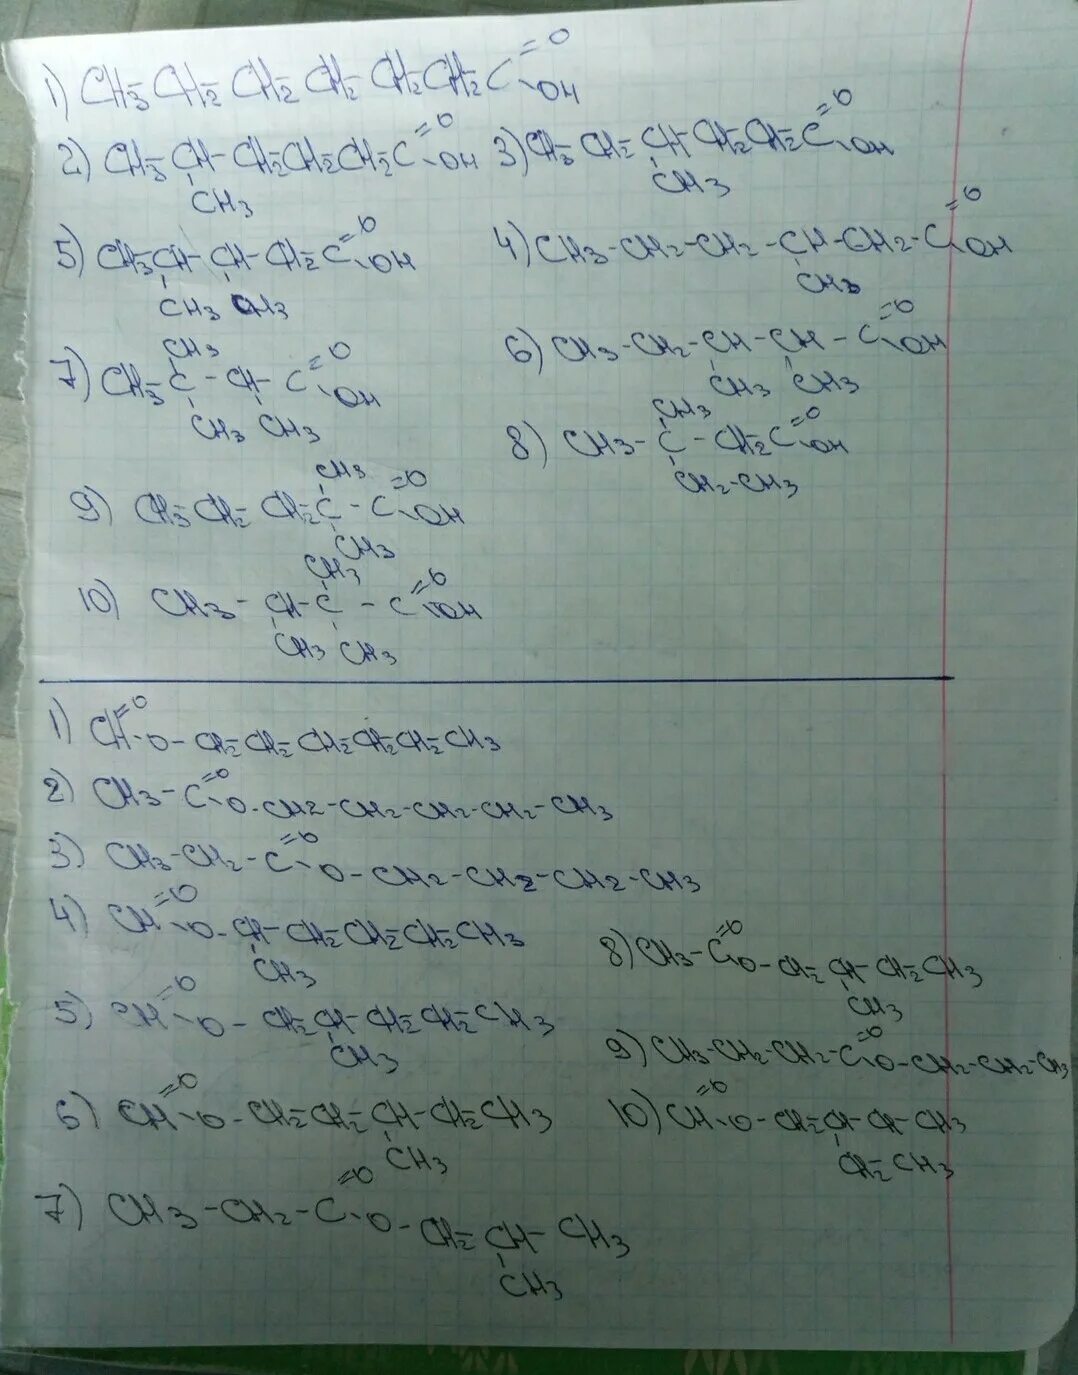 1) CH3-CH2-CH2-CH2-CH2-CH2-C=O-OH
2) CH3-CH-CH2-CH2-CH2-C=O-OH
CH3
3) CH3-CH2-CH-CH2-CH2-C=O-OH
CH3
5) CH3-CH-CH-CH2-C=O-OH
CH3 CH3
4) CH3-CH2-CH2-CH-CH2-C=O-OH
CH3
CH3
7) CH3-C-CH-C=O-OH
CH3 CH3
6) CH3-CH2-CH-CH-C=O-OH
CH3 CH3
CH3
8) CH3-C-CH2-C=O-OH
CH2-CH3
CH3
9) CH3-CH2-CH2-C-C=O-OH
CH3
CH3
10) CH3-CH-C-C=O-OH
CH3 CH3
1) CH=O-O-CH2-CH2-CH2-CH2-CH2-CH3
2) CH3-C=O-O-CH2-CH2-CH2-CH2-CH3
3) CH3-CH2-C=O-O-CH2-CH2-CH2-CH3
4) CH=O-O-CH-CH2-CH2-CH2-CH3
CH3
8) CH3-C=O-O-CH2-CH-CH2-CH3
CH3
5) CH=O-O-CH2-CH-CH2-CH2-CH3
CH3
9) CH3-CH2-CH2-C=O-O-CH2-CH2-CH3
6) CH=O-O-CH2-CH2-CH-CH2-CH3
CH3
10) CH=O-O-CH2-CH-CH-CH3
CH2-CH3
7) CH3-CH2-C=O-O-CH2-CH-CH3
CH3